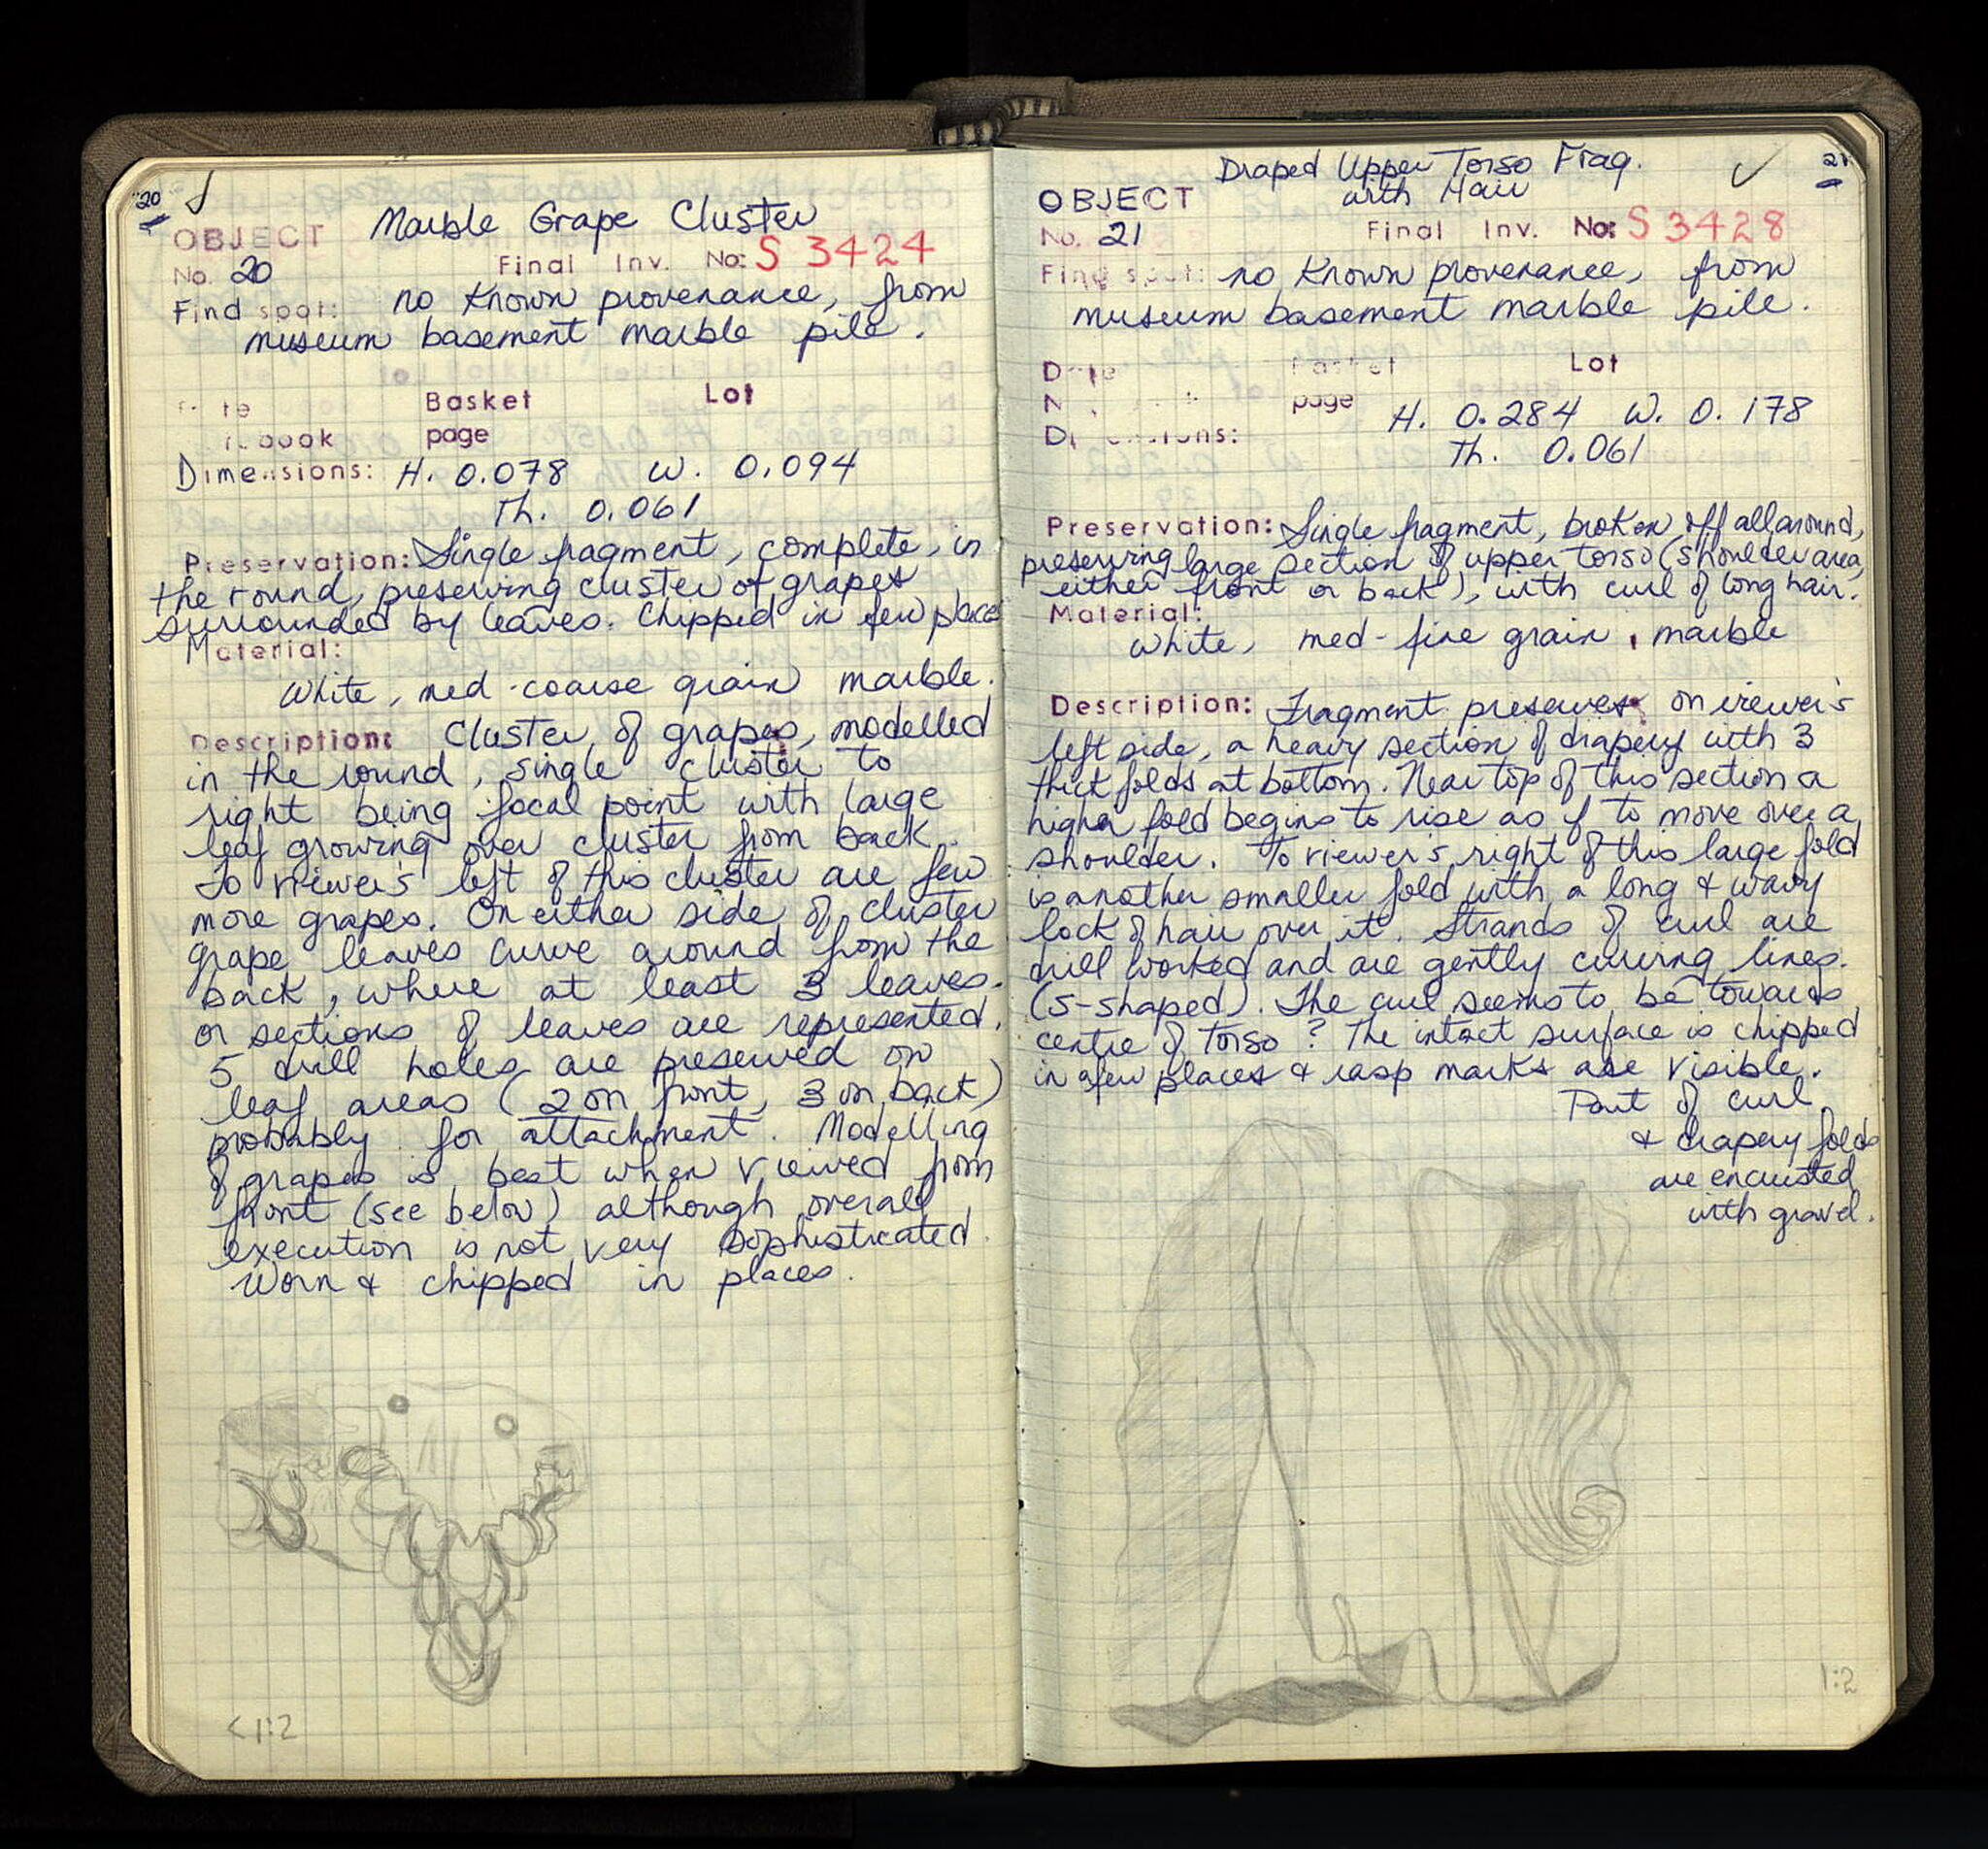 20
OBJECT Marble Grape Cluster
No. 20 Final Inv. No: S 3424
Find spot: no known provenance, from
museum basement marble pile.
te Basket Lot
book page
Dimensions: H. 0.078 W. 0.094
Th. 0.061
Preservation: Single fragment, complete, in
the round, preserving cluster of grapes
surrounded by leaves. Chipped in few places
Material:
White, med-coarse grain marble.
Description: Cluster of grapes, modelled
in the round, single cluster to
right being focal point with large
leaf growing over cluster from back.
To viewer's left of this cluster are few
more grapes. On either side of cluster
grape leaves curve around from the
back, where at least 3 leaves
or sections of leaves are represented.
5 drill holes are preserved on
leaf areas (2 on front, 3 on back)
probably for attachment. Modelling
of grapes is best when viewed from
front (see below) although overall
execution is not very sophisticated.
Worn & chipped in places.
< 1:2
21
Draped Upper Torso Frag.
OBJECT with Hair
No. 21 Final Inv. No: S 3428
Find spot: no known provenance, from
museum basement marble pile.
Date Basket Lot
N page H. 0.284 W. 0.178
Dimensions: Th. 0.061
Preservation: Single fragment, broken off all around,
preserving large section of upper torso (shoulder area,
either front or back), with curl of long hair.
Material:
white, med-fine grain, marble
Description: Fragment preserves on viewer's
left side, a heavy section of drapery with 3
thick folds at bottom. Near top of this section a
higher fold begins to rise as if to move over a
shoulder. To viewer's right of this large fold
is another smaller fold with a long & wavy
lock of hair over it. Strands of curl are
drill worked and are gently curving lines.
(S-shaped). The curl seems to be towards
centre of torso? The intact surface is chipped
in a few places & rasp marks are visible.
Part of curl
& drapery folds
are encrusted
with gravel.
1:2